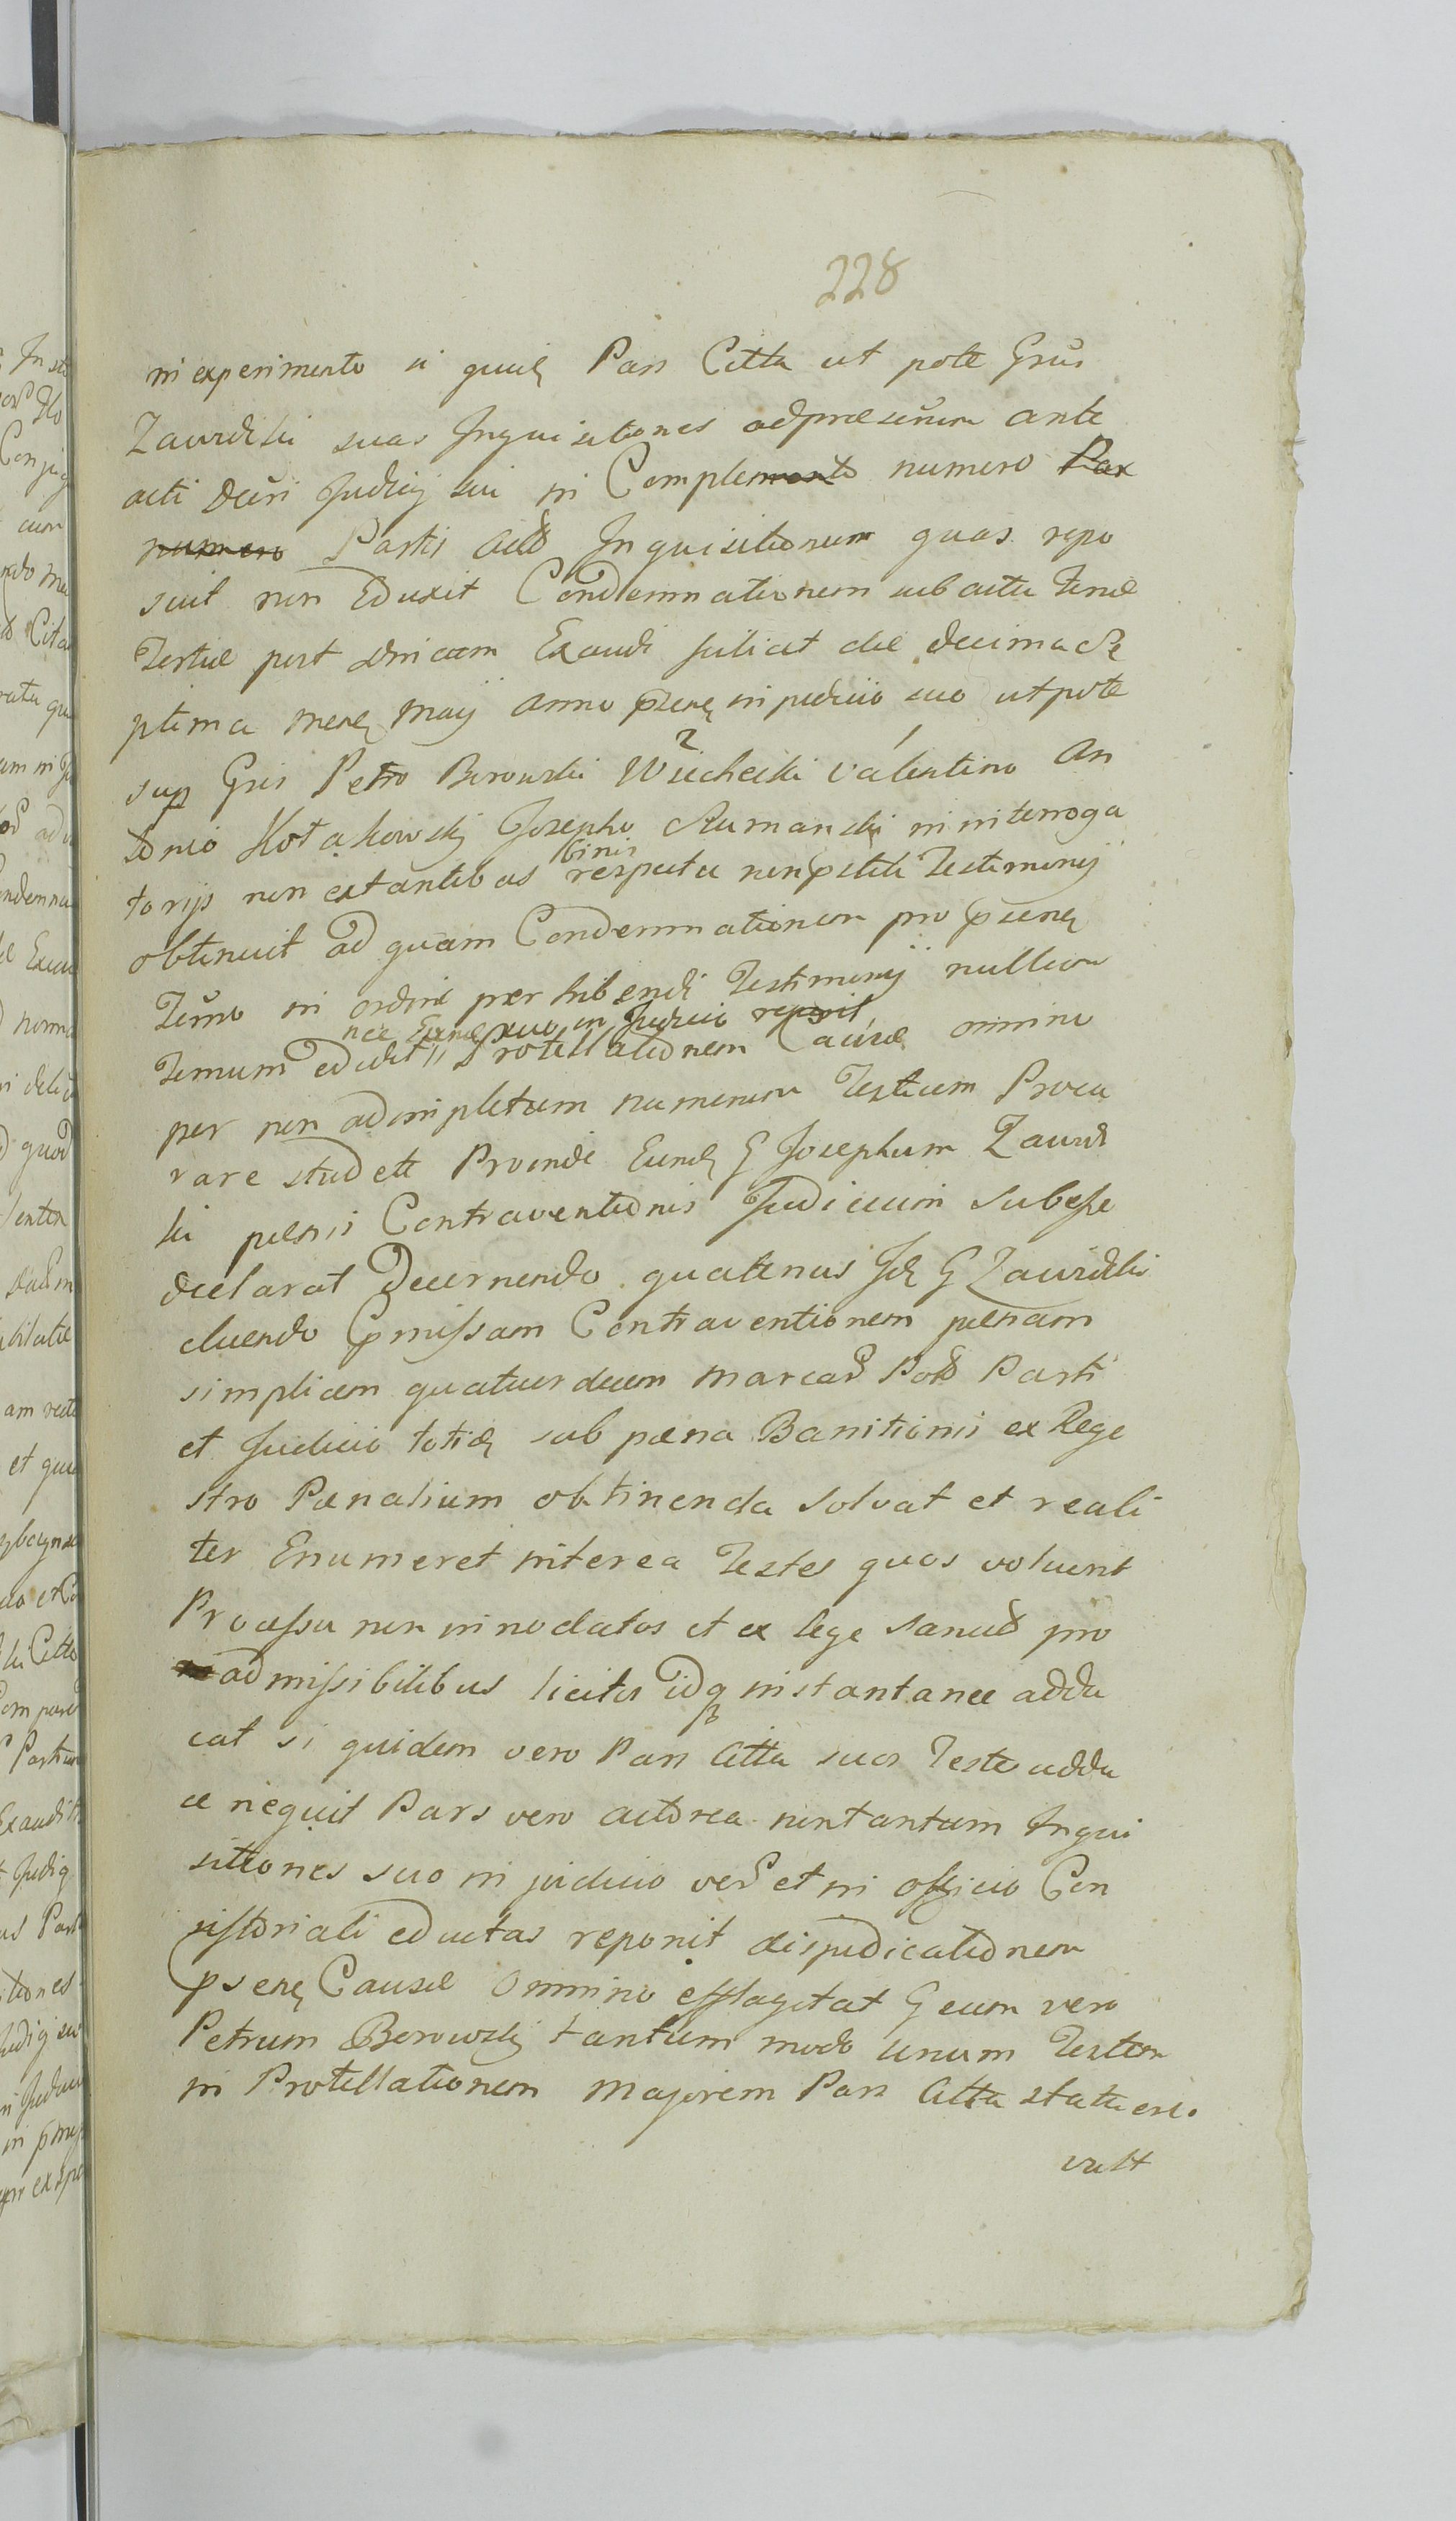 228
in experimento si quid Pars Citta ut pote Grūs
Zawidzki suas Inquisitiones ad præsenem ante
acti Decri Judicÿ sui in Complemento numero Par
numero Partis Acto Inquisitionum quas repo
suit non Eduxit Condemnationem sub actu Feriæ
Tertiæ post Dnicam Exaudi scilicet die decima Se
ptima mens Maÿ Anno præsen in judicio suo utpote
sup Gris Petro Borowski Wiecheiki Valentino An
tonio Kołakowskj Josepho Rumanski in interroga
torijs non extantibus binis respectu non pstiti Testimonÿ
obtinuit ad quam Condemnationem pro præsen
Termo in ordine perhibendi Testimonÿ nullum
nec Eund suo in Judicio reposit
Temum edidit Protellationem Causæ omnino
per non adimpletum numerum Testium Procu
rare studett Proinde Eund G Josephum Zawid
ski pœnis Contraventionis Judicium Subesse
declarat Decernendo quatenus Id G Zawidzki
eluendo Cpmissam Contraventionem pœnam
simplicem quatuordecem Marcas Pols Parti
et Judicio totid sub pœna Banitionis ex Rege
stro Pœnalium obtinenda Solvat et reali
ter Enumeret interea Testes quos voluerit
Processu non innodatos et ex lege Sancito pro
admissibilibus licitos idq instantanee addu
cat si quidem vero Pars Citta suos Testes addu
ce nequit Pars vero actorea non tantum Inqui
sitiones suo in judicio verum et in officio Con
sistoriali eductas reponit disjudicationem
psens Causæ Omnino efflagitat G eum vero
Petrum Borowskj tantum modo unum Testem
in Protellationem Majorem Pars Citta statuere
vult